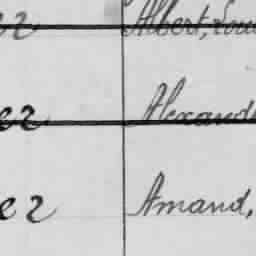 ez Albert, Loui
ez Alexand
ez Amand,